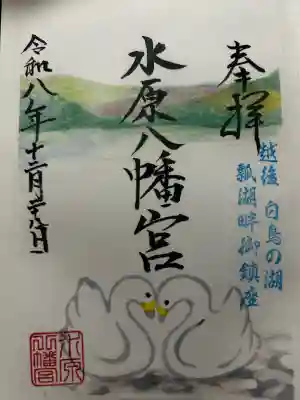 奉拝
越後 白鳥の湖
瓢湖畔御鎮座
水原八幡宮
令和八年十二月廿八日
水原
八幡宮